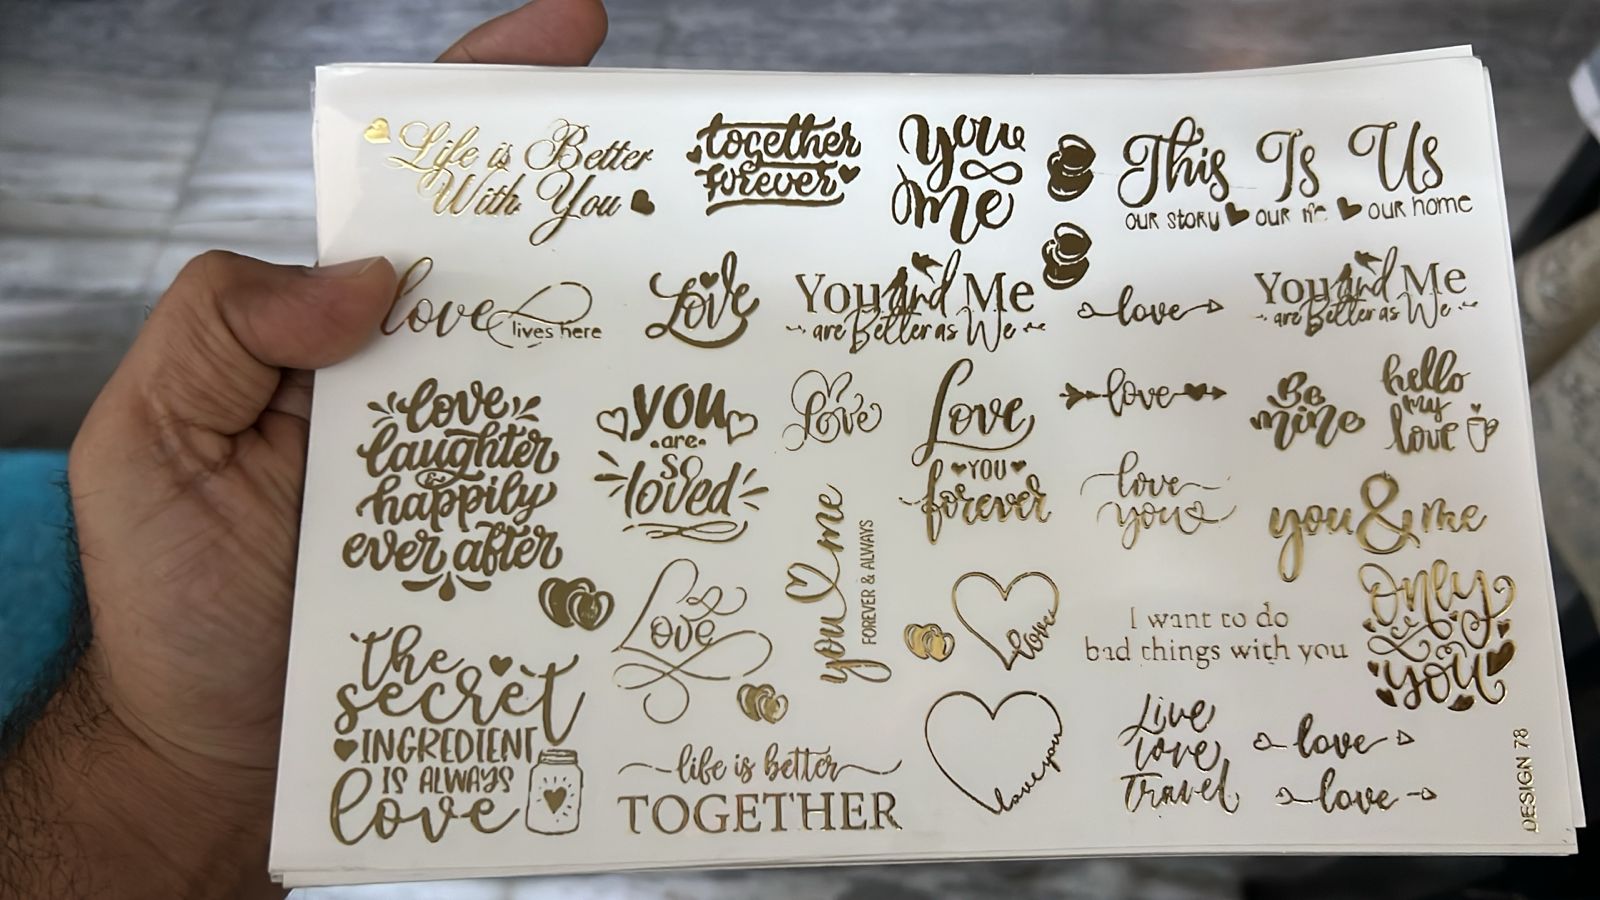 Life is Better
With You
together
forever
You
me
This Is Us
our story our life our home
love
lives here
Love
You and Me
are Better as We
love
You and Me
are Better as We
love
laughter
&
happily
ever after
you
are
so
loved
Love
Love
YOU
forever
love
Be
mine
hello
my
love
love
you
you & me
you me
FOREVER & ALWAYS
Love
love
I want to do
bad things with you
Only
you
the
secret
INGREDIENT
IS ALWAYS
love
life is better
TOGETHER
love you
Live
love
Travel
love
love
DESIGN 78